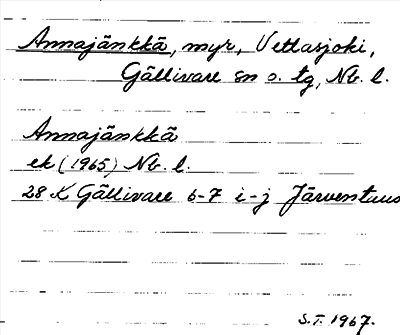 Annajänkkä, myr, Vettasjoki,
Gällivare sn o. tg, Nb. l.
Annajänkkä
ek (1965) Nb. l.
28 K Gällivare 6-7 i-j Järventaus
S.T. 1967.